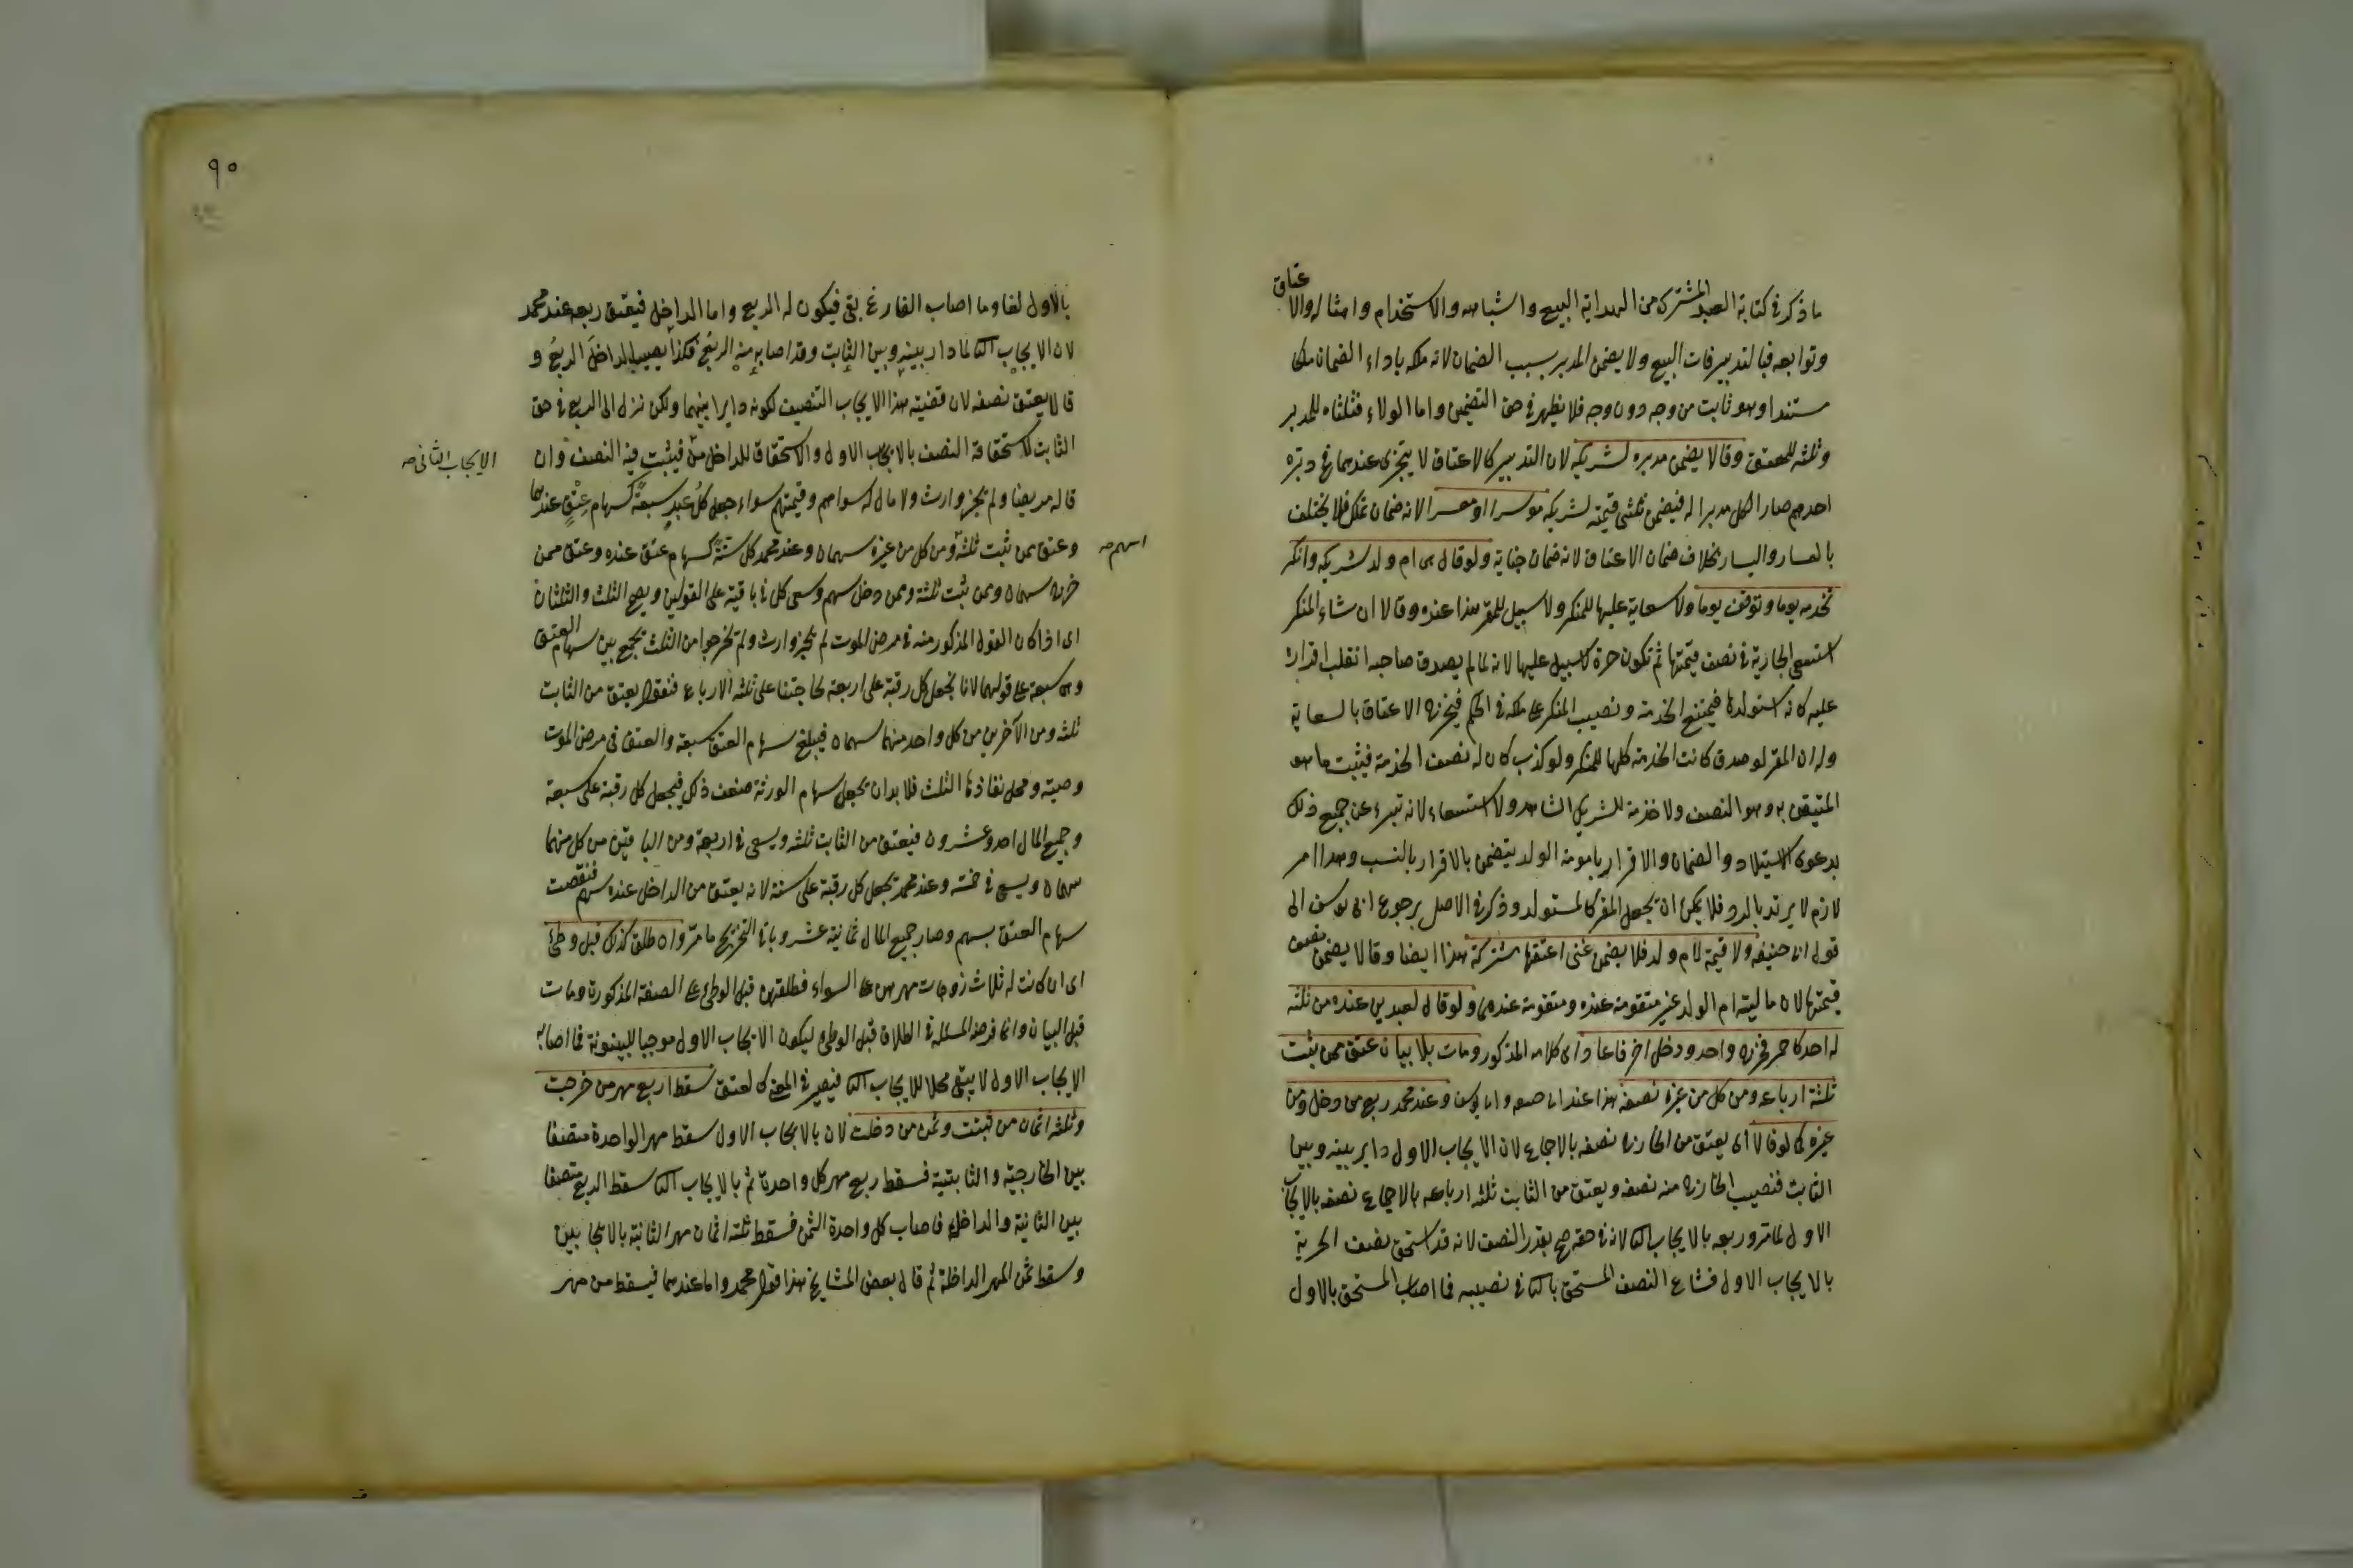 ما ذكر في كتابة العبد المشترك من الهداية البيع واشباهه والاستخدام وامثاله والاعتاق
وتوابعه فبالتدبير فات البيع ولا يضمن المدبر بسبب الضمان لانه ملكه باداء الضمان ملكا
مستندا وهو ثابت من وجه دون وجه فلا يظهر في حق التضمين واما الولاء فثلثاه للمدبر
وثلثه للمعتق وقالا يضمن مدبره لشريكيه لان التدبير كالاعتاق لا يتجزى عندهما فدبره
احدهم صار الكل مدبرا له فيضمن ثلثي قيمته لشريكيه موسرا او معسرا لانه ضمان تملك فلا يختلف
بالعسار واليسار بخلاف ضمان الاعتاق لانه ضمان جناية ولو قال هي ام ولد شريكي وانكر
تخدمه يوما وتوقف يوما ولا سعاية عليها للمنكر ولا سبيل للمقر هذا عنده وقالا ان شاء المنكر
استسعى الجارية في نصف قيمتها ثم تكون حرة لا سبيل عليها لانه لما لم يصدق صاحبه انقلب اقراره
عليه كانه استولدها فيمتنع الخدمة ونصيب المنكر على ملكه في الحكم فيخرج الاعتاق بالسعاية
وله ان المقر لو صدق كانت الخدمة كلها للمنكر ولو كذب كان له نصف الخدمة فيثبت ما هو
المتيقن به وهو النصف ولا خدمة للشريك الشاهد ولا استسعاء لانه تبرء عن جميع ذلك
بدعوى الاستيلاد والضمان والاقرار بامومة الولد يتضمن بالاقرار بالنسب وهذا امر
لازم لا يرتد بالرد فلا يمكن ان يجعل المقر كالمستولد وذكر في الاصل رجوع ابى يوسف الى
قول ابى حنيفه ولا قيمة لام ولد فلا يضمن غنى اعتقها مشتركة هذا ايضا وقالا يضمن نصف
قيمتها لان مالية ام الولد غير متقومة عنده ومتقومة عندهما ولو قال لعبدين عنده من ثلثه
له احدكما حر فخرج واحد ودخل آخر فاعاد اى كلامه المذكور ومات بلا بيان عتق ممن يثبت
ثلثة ارباعه ومن كل من غيره نصفه هذا عند ابى حنيفه وابى يوسف وعند محمد ربع من دخل ومن
غيره كما لو قالا اى يعتق من الخارج نصفه بالاجماع لان الايجاب الاول دابر بينه وبين
الثابت فنصيب الخارج منه نصفه ويعتق من الثابت ثلثه ارباعه بالاجماع نصفه بالايجاب
الاول لما مر وربعه بالايجاب الثا لانه في حقه صح بقدر النصف لانه قد استحق نصف الحرية
بالايجاب الاول فشاع النصف المستحق بالثا في نصيبه فما اصاب المستحق بالاول
٩٠
بالاول لغا وما اصاب الفارغ بقى فيكون له الربع واما الداخل فيعتق ربعه عند محمد
لان الايجاب الثا لما دار بينه وبين الثابت وقد اصابه منه الربع فكذا يصيب الداخل الربع و
قالا يعتق نصفه لان قضية هذا الايجاب التنصيف لكونه دايرا بينهما ولكن نزل الى الربع في حق
الثابت لاستحقاقه النصف بالايجاب الاول والاستحقاق للداخل من فيثبت فيه النصف وان
الايجاب الثانى صح
قاله مريضا ولم يجز وارث ولا مال له سواهم وقيمتهم سواء جعل كل عبد سبعة كسهام عتق عندهما
وعتق ممن ثبت ثلثة ومن كل من غيره سهمان وعند محمد كل ستة كسهام عتق عنده وعتق ممن
اسهم صح
خرج سهمان وممن ثبت ثلثة وممن دخل سهم وسعى كل في باقيه على القولين ويصح الثلث والثلثان
اى اذا كان القول المذكور منه في مرض الموت لم يجز وارث ولم تخرجوا من الثلث تجمع بين سهام العتق
وهى سبعة على قولهما لانا نجعل كل رقبة على اربعة لحاجتنا على ثلثه الارباع فنقول يعتق من الثابت
ثلثه ومن الآخرين من كل واحد منهما سهمان فيبلغ سهام العتق سبعة والعتق في مرض الموت
وصية ومحل نفاذها الثلث فلا بد ان يجعل سهام الورثة ضعف ذلك فيجعل كل رقبة على سبعة
وجميع المال احد وعشرون فيعتق من الثابت ثلثه ويسعى في اربعة ومن الباقيين من كل منهما
سهمان ويسعى في خمسة وعند محمد يجعل كل رقبة على ستة لانه يعتق من الداخل عنده سهم فنقصت
سهام العتق بسهم وصار جميع المال ثمانية عشر وباقى التخريج ما مر وان طلق كذلك قبل وطئ
اى ان كانت له ثلاث زوجات مهرهن على السواء فطلقهن قبل الوطئ على الصفة المذكورة ومات
قبل البيان وانما فرض المسئلة في الطلاق قبل الوطئ ليكون الايجاب الاول موجبا للبينونة فما اصابه
الايجاب الاول لا يبقى محلا للايجاب الثا فيصير في المعنى كالعتق سقط اربع مهر من خرجت
وثلثه اثمان من ثبتت وثمن من دخلت لان بالايجاب الاول سقط مهر الواحدة منصفا
بين الخارجية والثابتة فسقط ربع مهر كل واحدة ثم بالايجاب الثا سقط الربع منصفا
بين الثانية والداخلة فاصاب كل واحدة الثمن فسقط ثلثه اثمان مهر الثانية بالايجابين
وسقط ثمن المهر الداخلة ثم قال بعض المشايخ هذا قول محمد واما عندهما فيسقط من مهر